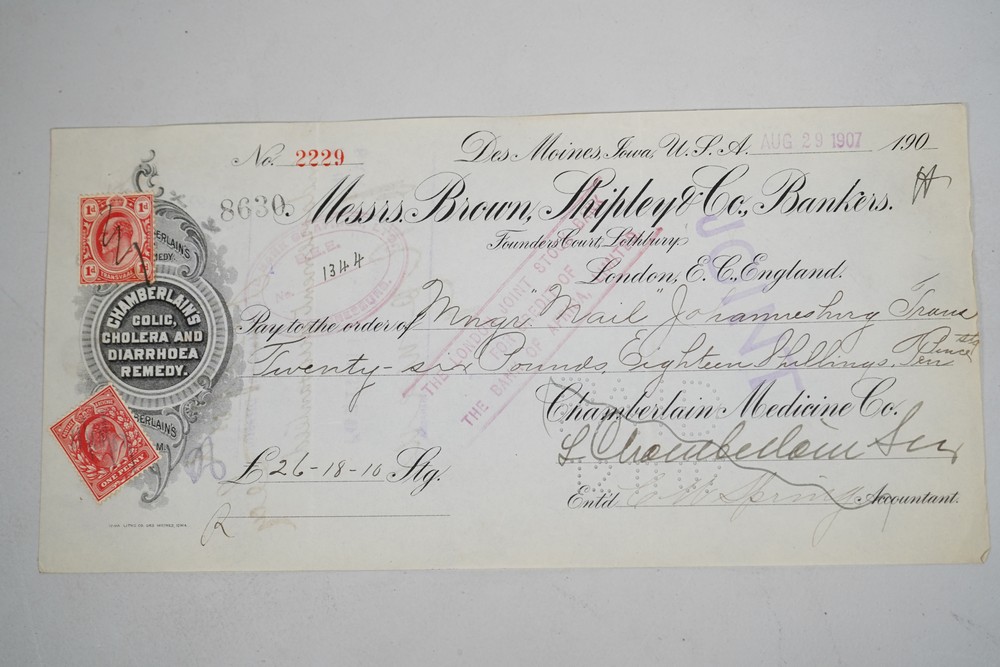 No. 2229
Des Moines, Iowa, U.S.A. AUG 29 1907 190
8630. Messrs. Brown, Shipley & Co., Bankers.
Founders Court, Lothbury,
London, E.C., England.
1d 1d
1d 1d
TRANSVAAL
1344
No.
Pay to the order of Mngr. "Mail" Johannesburg Trans
Twenty-six Pounds, Eighteen Shillings, Ten Pence Stg
THE LONDON JOINT STOCK
FOR CREDIT OF
THE BANK OF AFRICA, LIMITED
CHAMBERLAIN'S
COLIC,
CHOLERA AND
DIARRHOEA
REMEDY.
Chamberlain Medicine Co.
ONE PENNY
£ 26-18-10 Stg.
Chamberlain
Ent'd Accountant.